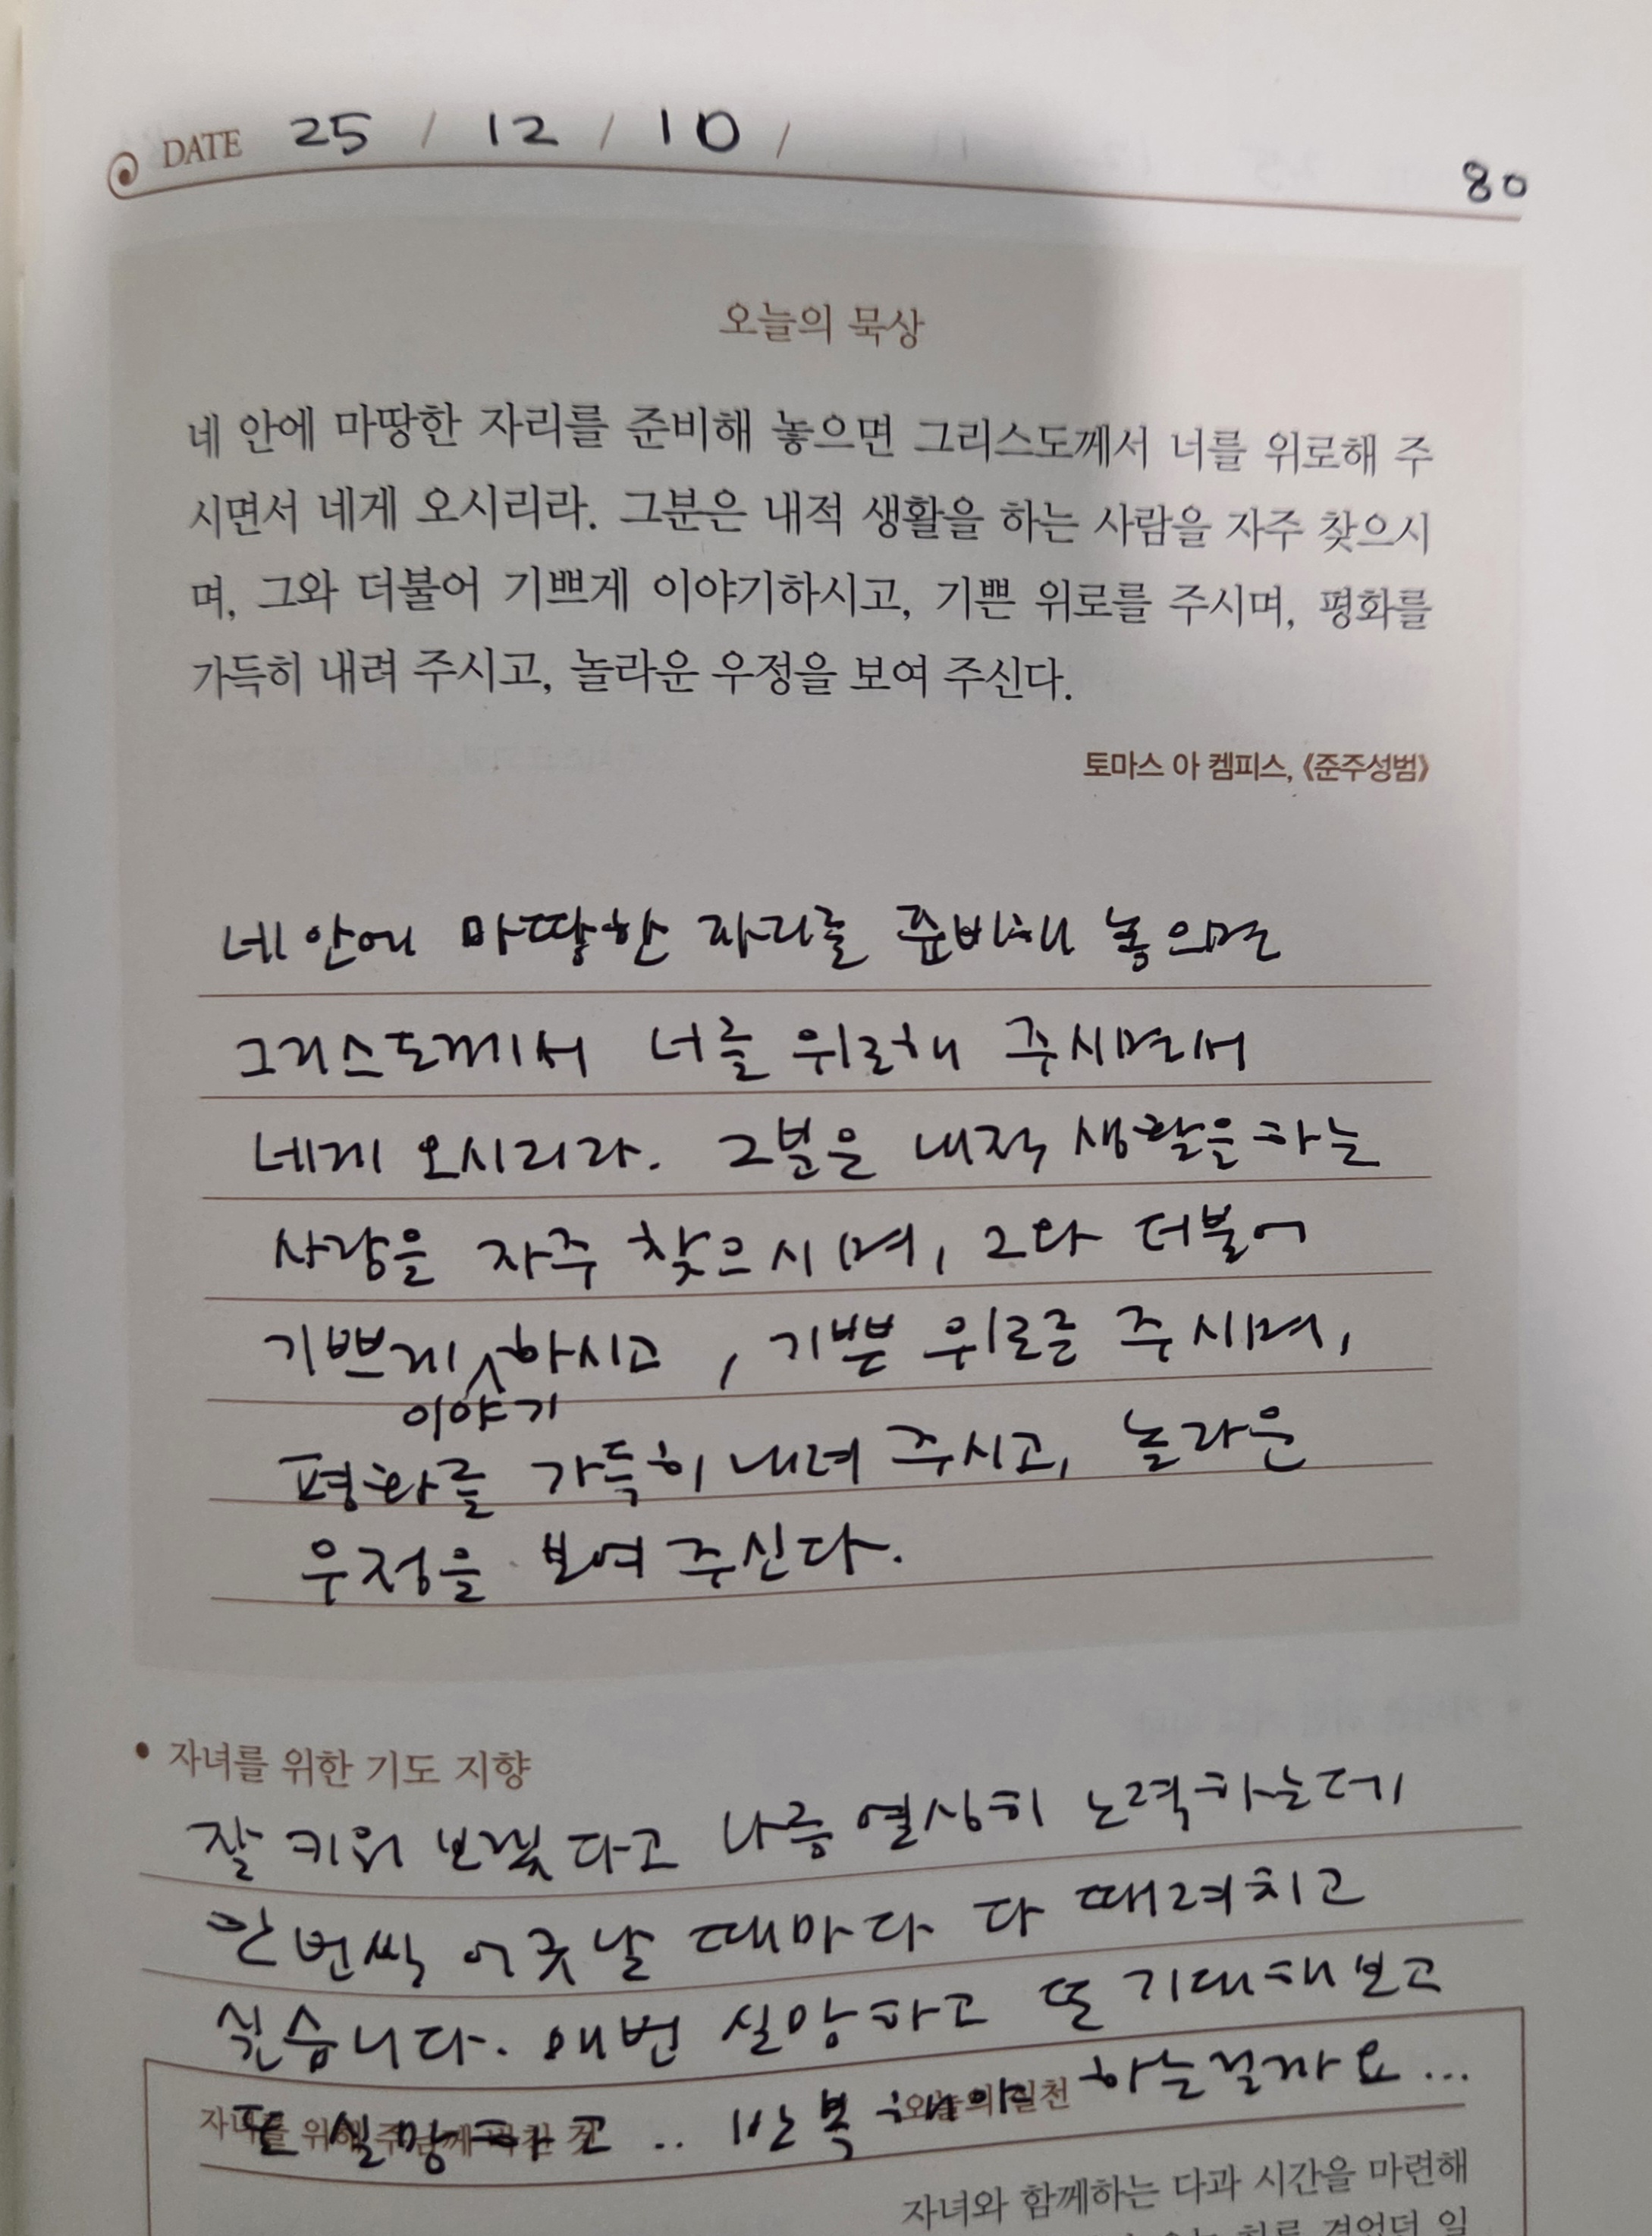 DATE 25 / 12 / 10 /
80
오늘의 묵상
네 안에 마땅한 자리를 준비해 놓으면 그리스도께서 너를 위로해 주
시면서 네게 오시리라. 그분은 내적 생활을 하는 사람을 자주 찾으시
며, 그와 더불어 기쁘게 이야기하시고, 기쁜 위로를 주시며, 평화를
가득히 내려 주시고, 놀라운 우정을 보여 주신다.
토마스 아 켐피스, 《준주성범》
네 안에 마땅한 자리를 준비해 놓으면
그리스도께서 너를 위로해 주시면서
네게 오시리라. 그분은 내적 생활을 하는
사람을 자주 찾으시며, 그와 더불어
기쁘게 하시고, 기쁜 위로를 주시며,
이야기
평화를 가득히 내려 주시고, 놀라운
우정을 보여 주신다.
• 자녀를 위한 기도 지향
잘 키워 보겠다고 나름 열심히 노력하는데
한번씩 어긋날 때마다 다 때려치고
싶습니다. 매번 실망하고 또 기대해보고
또 실망하고.. 반복해야 하는걸까요...
자녀를 위해 주님께 바친 것
오늘의 실천
자녀와 함께하는 다과 시간을 마련해
겪었던 일